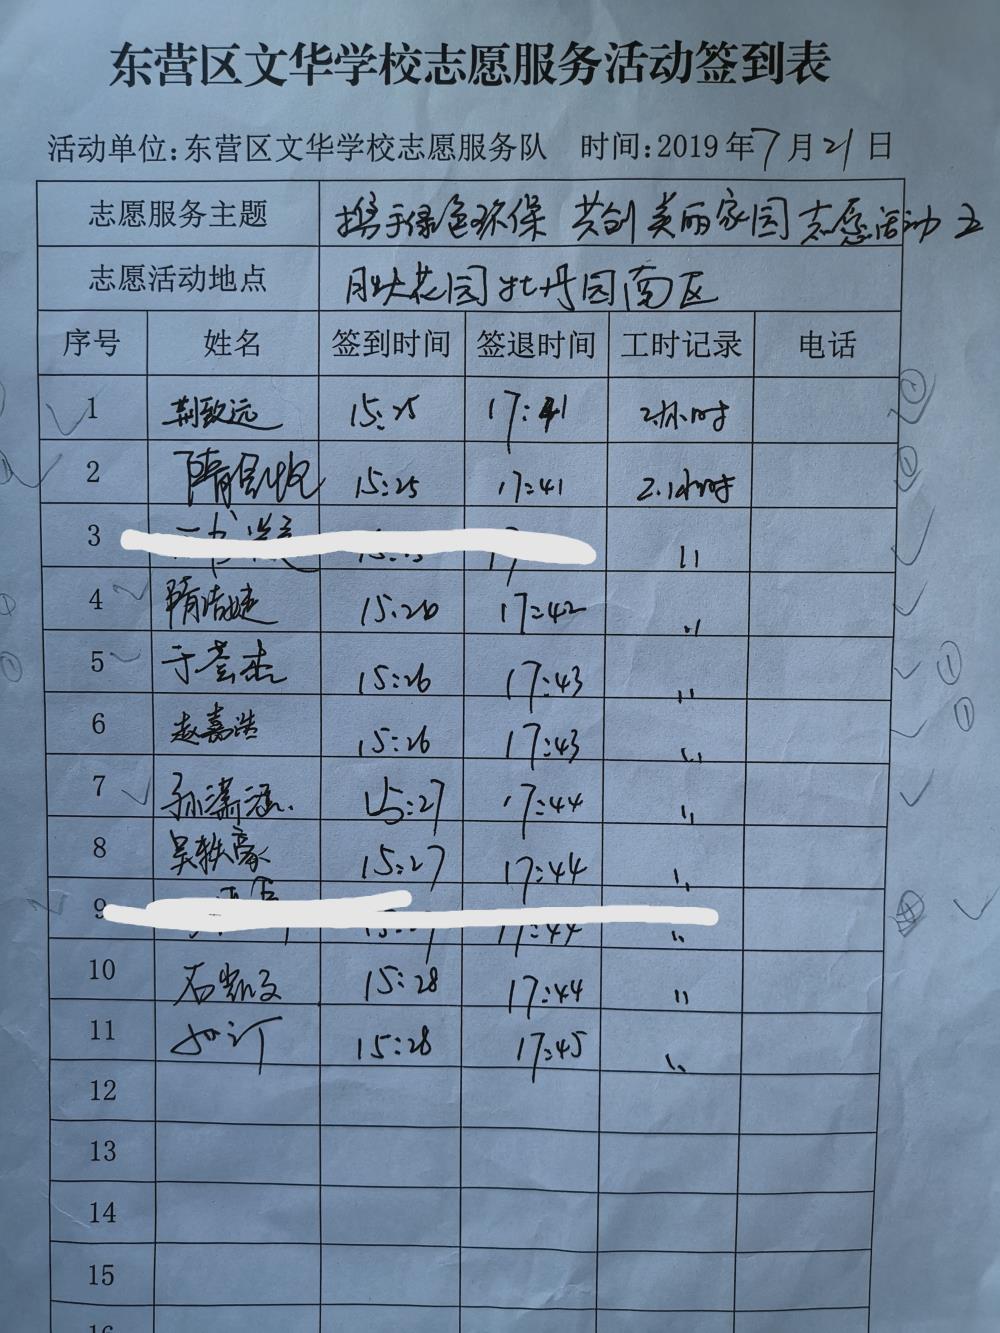 东营区文华学校志愿服务活动签到表
活动单位:东营区文华学校志愿服务队 时间:2019年7月21日
志愿服务主题 携手绿色环保 共创美丽家园志愿活动
志愿活动地点 月状花园牡丹园南区
序号 姓名 签到时间 签退时间 工时记录 电话
1 荆致远 15:25 17:41 2小时
2 隋 15:25 17:41 2.1小时
3 〃
4 隋洁婕 15:26 17:42 〃
5 于芸杰 15:26 17:43 〃
6 赵嘉浩 15:26 17:43 〃
7 孙潇涵 15:27 17:44 〃
8 吴轶豪 15:27 17:44 〃
9 17:44 〃
10 石凯文 15:28 17:44 〃
11 15:28 17:45 〃
12
13
14
15
16